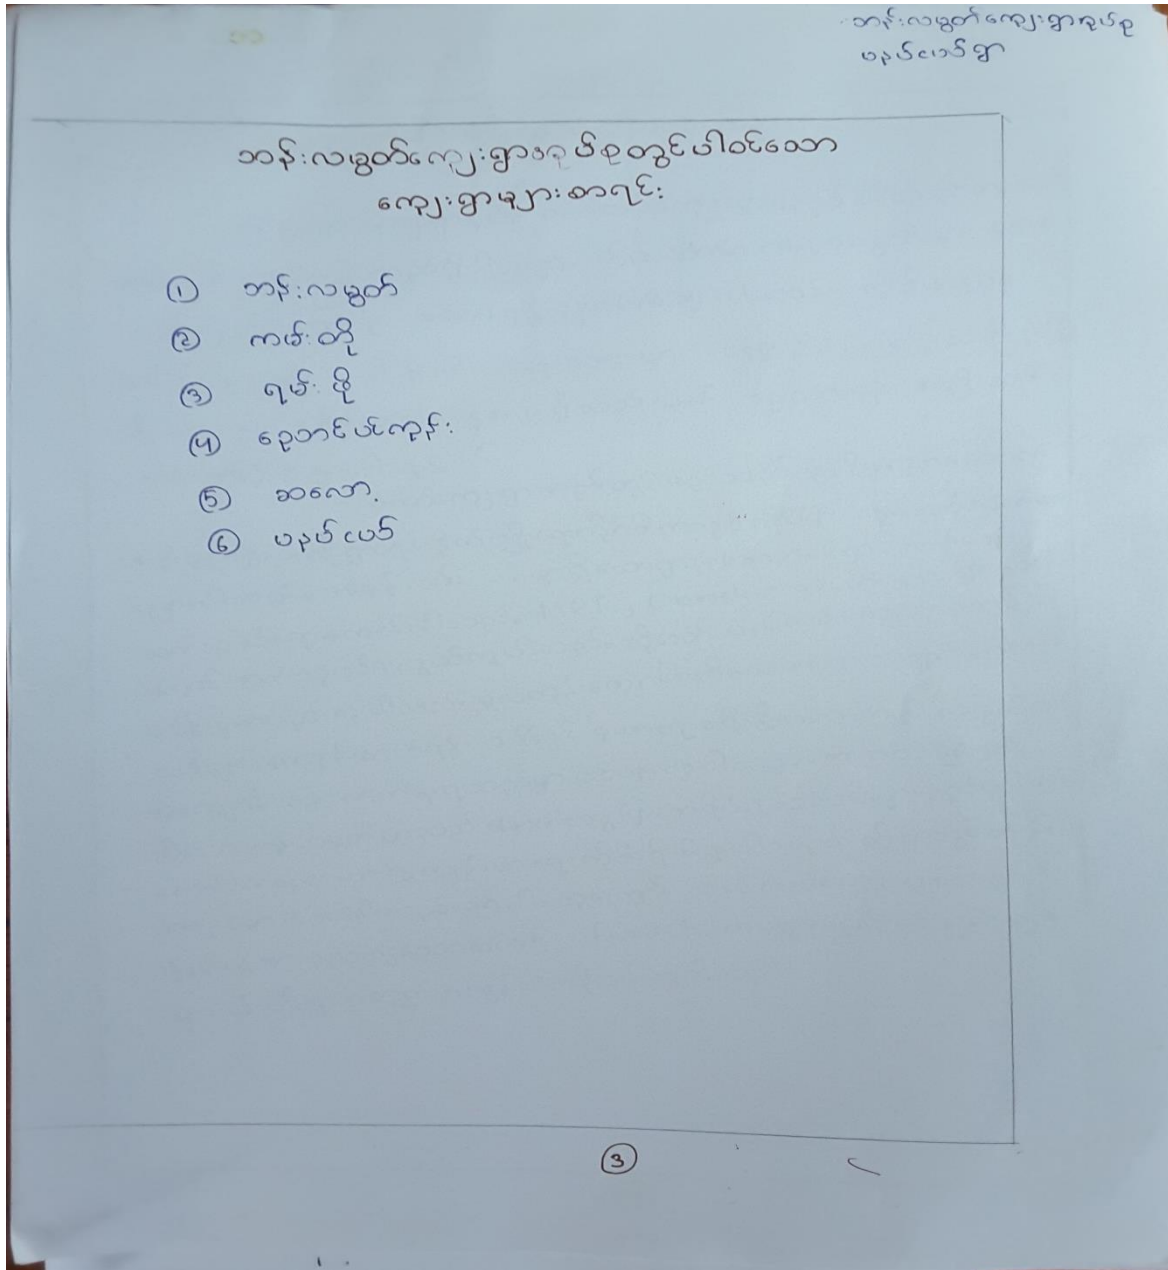 ဘန်းလမွတ်ကျေးရွာအုပ်စု
ပနပ်ငပါ်ရွာ
ဘန်းလမွတ်ကျေးရွာအုပ်စုတွင်ပါဝင်သော
ကျေးရွာများစာရင်း
① ဘန်းလမွတ်
② ကမ်းတို
③ ရမ်းဖို
④ ညောင်ပင်ကုန်း
⑤ ဆလော့
⑥
③